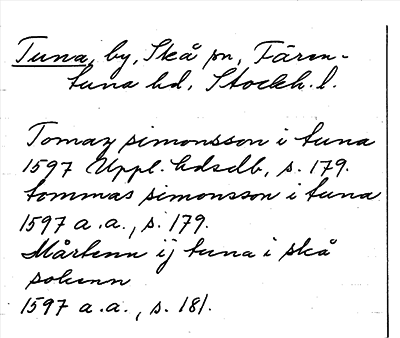 Tuna, by, Skå sn, Fären-
tuna hd, Stockh. l.
Tomaz simonsson i tuna
1597 Uppl. hdsdb, s. 179.
tommas simonsson i tuna
1597 a.a., s. 179.
Mårtenn ij tuna i skå
sokenn
1597 a.a., s. 181.